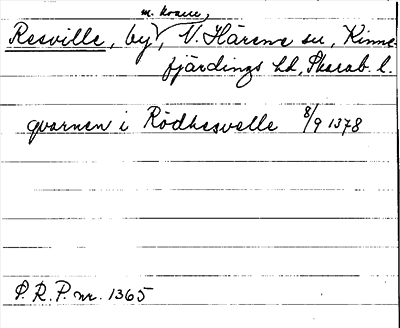 m. kvarn,
Resville, by, V. Härene sn, Kinne-
fjärdings hd, Skarab. l.
qvarnen i Rödhesvelle 8/9 1378
P. R. P. nr. 1365